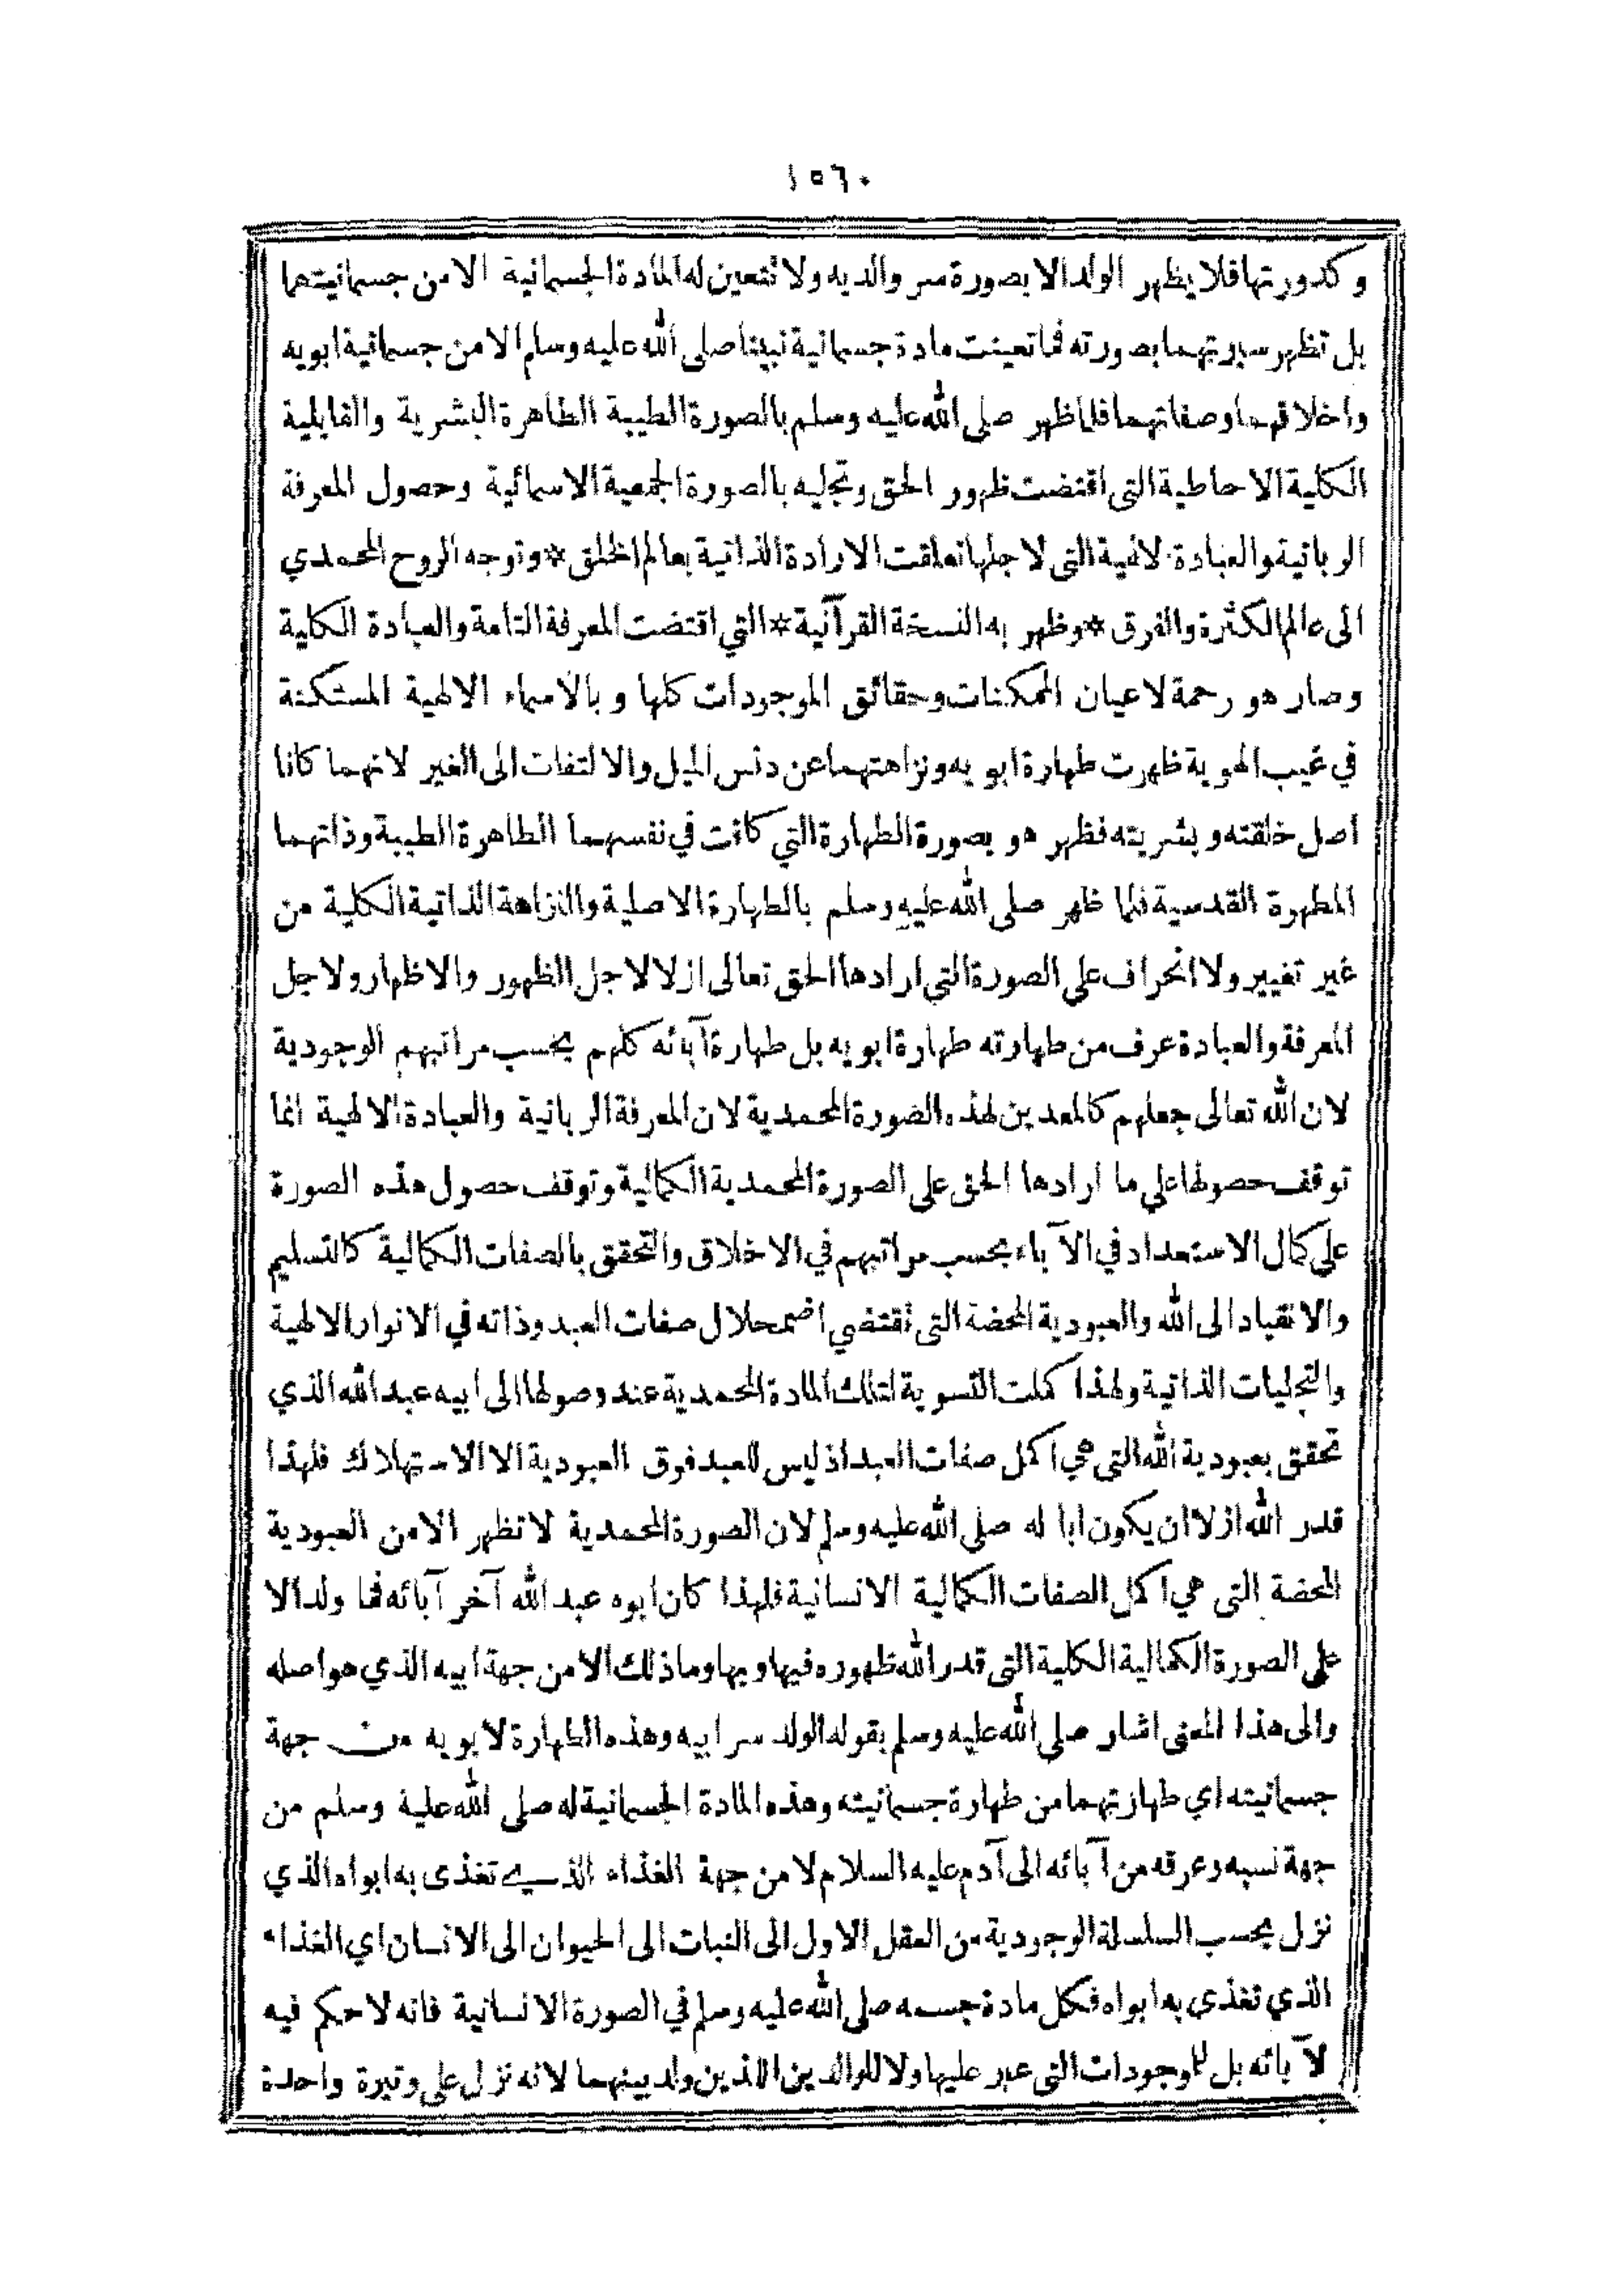 ١٥٦٠
وكدورتها فلا يظهر الولد الا بصورة سر والديه ولا تتعين له المادة الجسمانية الا من جسمانيتهما
بل تظهر سيرتهما بصورته فما تعينت مادة جسمانية نبينا صلى الله عليه وسلم الا من جسمانية ابويه
واخلاقهما وصفاتهما فلما ظهر صلى الله عليه وسلم بالصورة الطيبة الطاهرة البشرية والقابلية
الكلية الاحاطية التى اقتضت ظهور الحق وتجليه بالصورة الجمعية الاسمائية وحصول المعرفة
الربانية والعبادة لالهية التى لاجلها تعلقت الارادة الذاتية بعالم الخلق * وتوجه الروح المحمدي
الى عالم الكثرة والفرق * وظهر به النسخة القرآنية * التي اقتضت المعرفة التامة والعبادة الكلية
وصار هو رحمة لاعيان الممكنات وحقائق الموجودات كلها و بالاسماء الالهية المستكنة
في غيب الهوية ظهرت طهارة ابويه ونزاهتهما عن دنس الميل والالتفات الى الغير لانهما كانا
اصل خلقته وبشريته فظهر هو بصورة الطهارة التي كانت في نفسهما الطاهرة الطيبة وذاتهما
المطهرة القدسية فلما ظهر صلى الله عليه وسلم بالطهارة الاصلية والنزاهة الذاتية الكلية من
غير تغيير ولا انحراف على الصورة التي ارادها الحق تعالى ازلا لاجل الظهور والاظهار ولاجل
المعرفة والعبادة عرف من طهارته طهارة ابويه بل طهارة آبائه كلهم بحسب مراتبهم الوجودية
لان الله تعالى جعلهم كالمعدين لهذه الصورة المحمدية لان المعرفة الربانية والعبادة الالهية انما
توقف حصولها على ما ارادها الحق على الصورة المحمدية الكمالية وتوقف حصول هذه الصورة
على كمال الاستعداد في الآباء بحسب مراتبهم في الاخلاق والتحقق بالصفات الكمالية كالتسليم
والانقياد الى الله والعبودية المحضة التى تقتضي اضمحلال صفات العبد وذاته في الانوار الالهية
والتجليات الذاتية ولهذا كملت التسوية لتلك المادة المحمدية عند وصولها الى ابيه عبد الله الذي
تحقق بعبودية الله التى هي اكمل صفات العبد اذ ليس للعبد فوق العبودية الا الاستهلاك فلهذا
قدر الله ازلا ان يكون ابا له صلى الله عليه وسلم لان الصورة المحمدية لا تظهر الا من العبودية
المحضة التى هي اكمل الصفات الكمالية الانسانية فلهذا كان ابوه عبد الله آخر آبائه فما ولد الا
على الصورة الكمالية الكلية التى قدر الله ظهوره فيها وبها وما ذلك الا من جهة ابيه الذي هو اصله
والى هذا المعنى اشار صلى الله عليه وسلم بقوله الولد سر ابيه وهذه الطهارة لابويه من جهة
جسمانيته اي طهارتهما من طهارة جسمانيته وهذه المادة الجسمانية له صلى الله علية وسلم من
جهة نسبه وعرقه من آبائه الى آدم عليه السلام لا من جهة الغذاء الذي تغذى به ابواه الذي
نزل بحسب السلسلة الوجودية من العقل الاول الى النبات الى الحيوان الى الانسان اي الغذاء
الذي تغذى به ابواه فكل مادة جسمه صلى الله عليه وسلم في الصورة الانسانية فانه لا حكم فيه
لآبائه بل للموجودات التى عبر عليها ولا للوالدين اللذين ولد بينهما لانه نزل على وتيرة واحدة